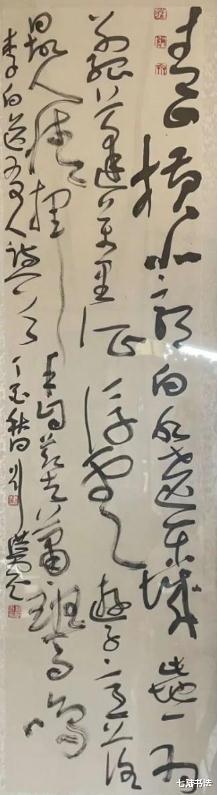 青山横北郭白水遶東城此地一為
别孤蓬萬里征浮雲遊子意落
日故人情揮手自茲去蕭蕭班馬鳴
李白送友人詩一首
书法